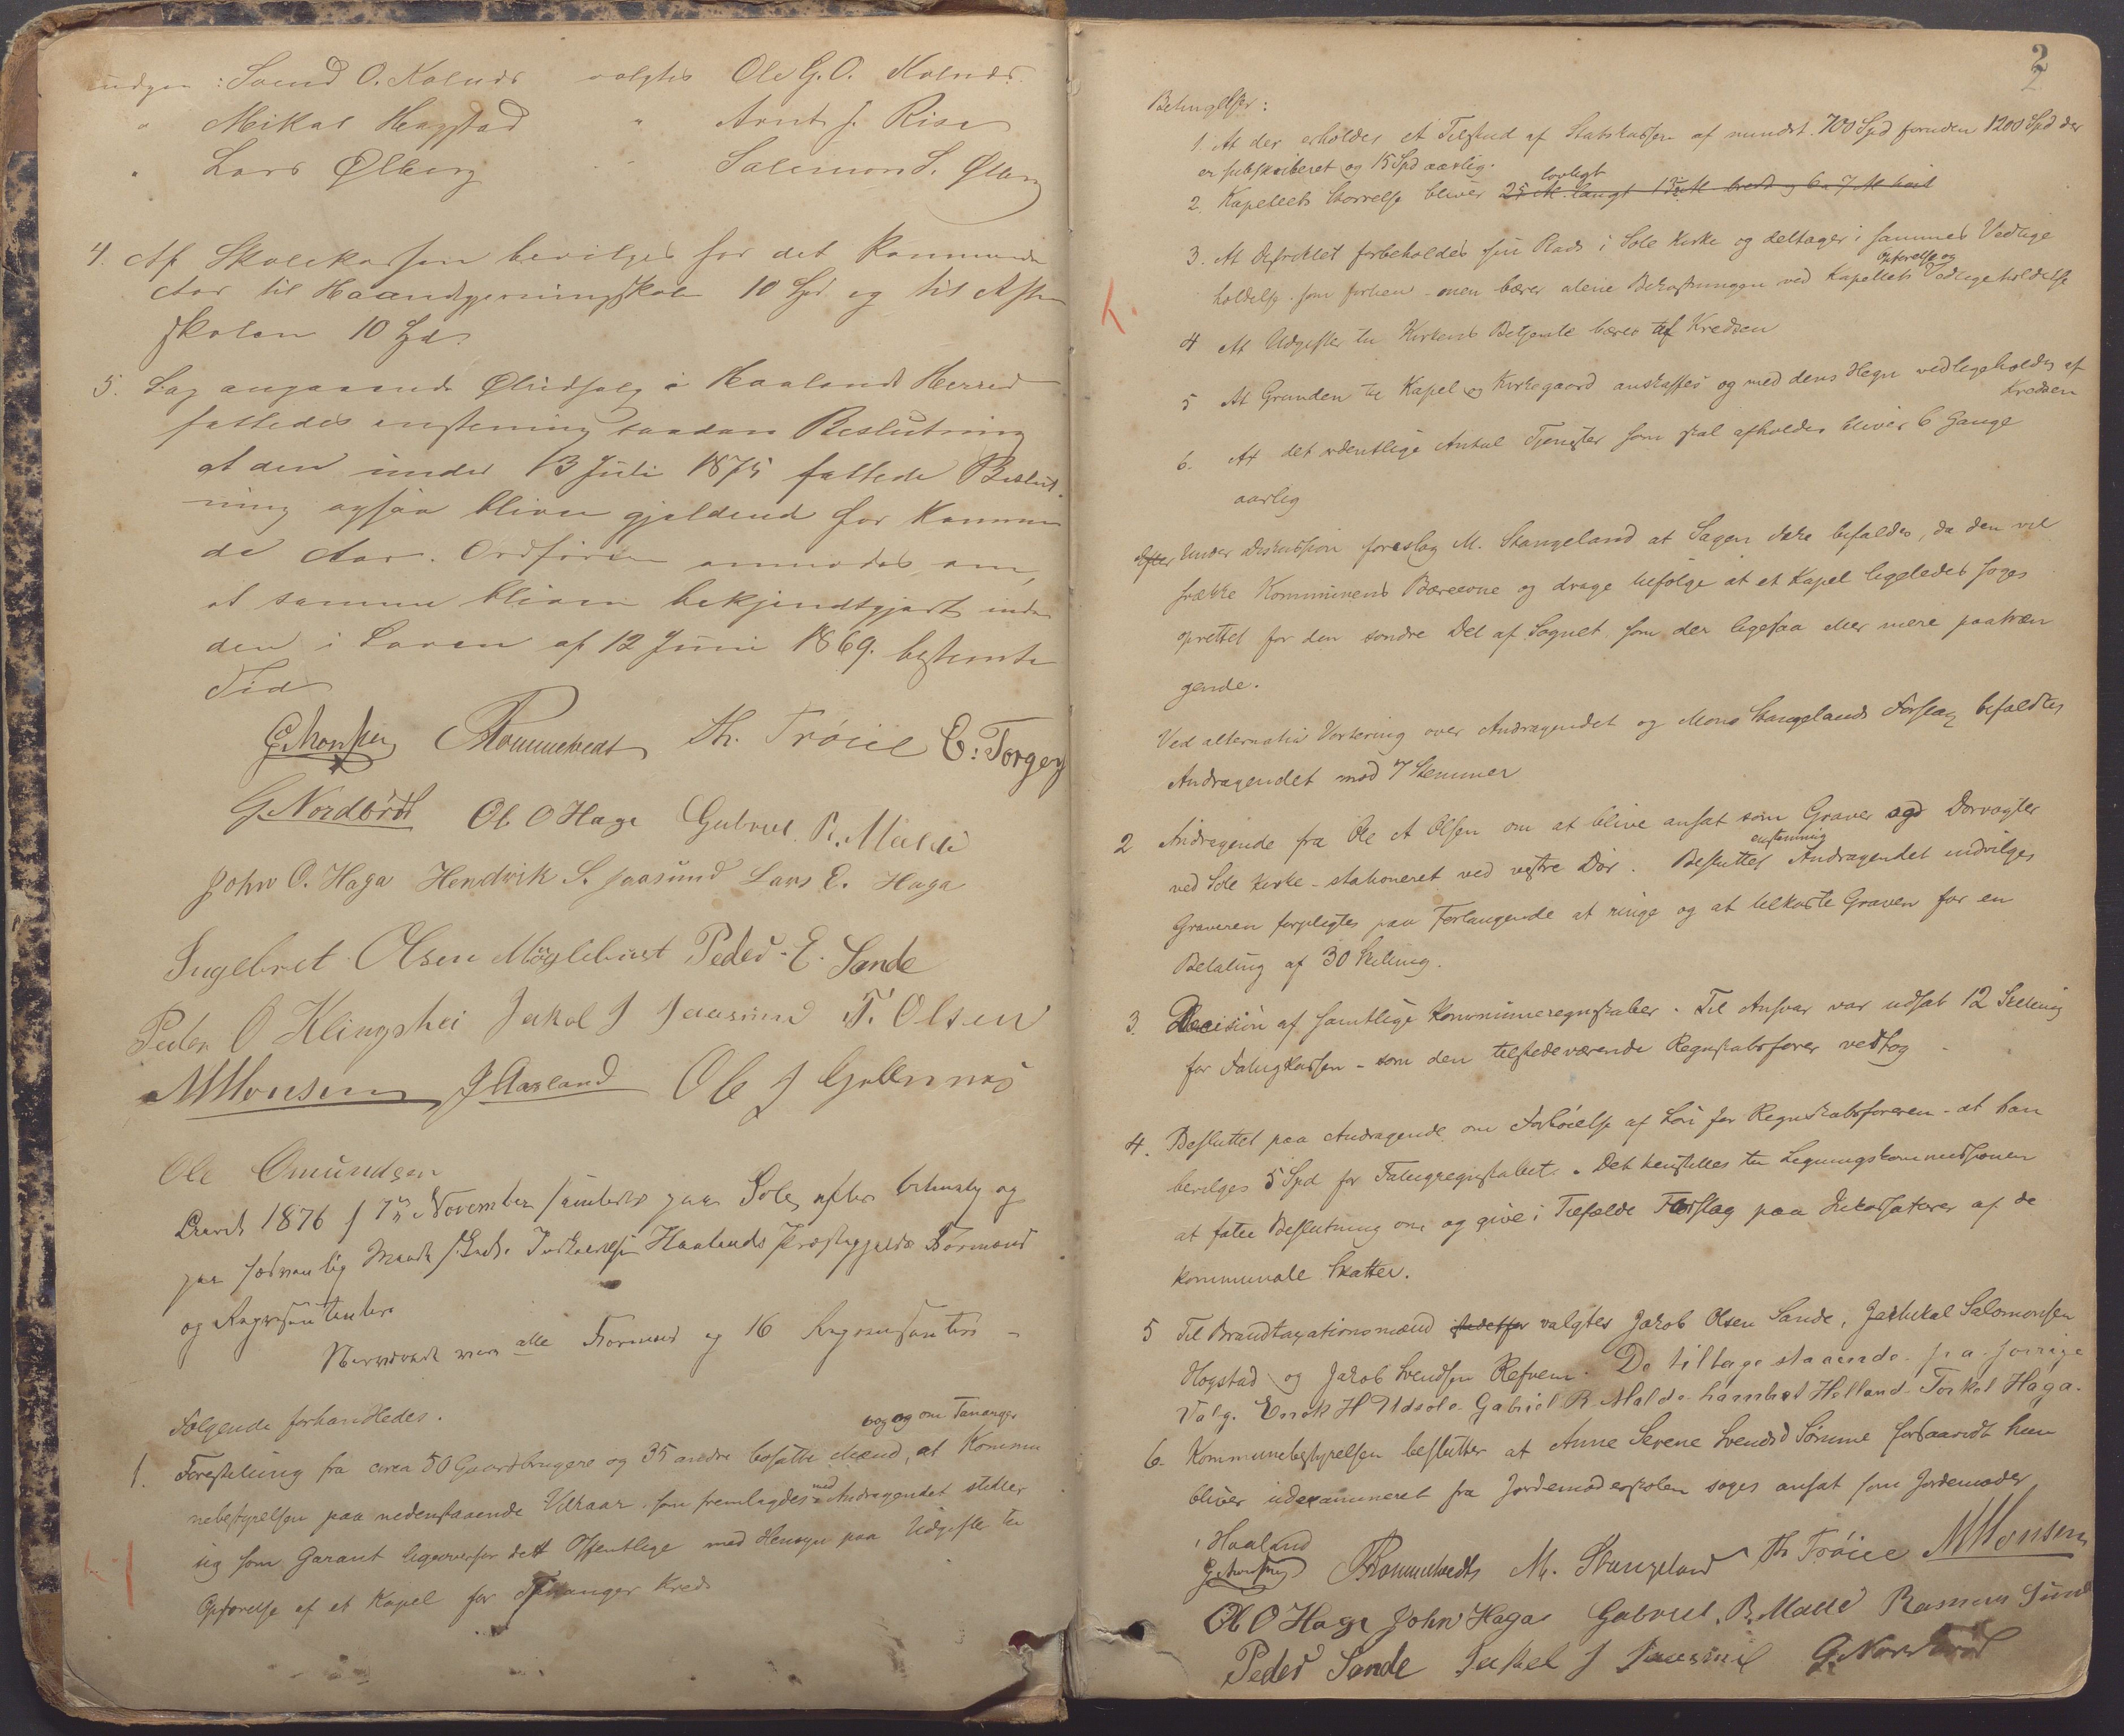 udgaar: Svend O. Kolnes valgtes Ole G. O. Kolnes.
" Mikal Hagstad " Arnt J. Risa
" Lars Ølberg " Salemon S. Ølberg
4. Af Skolekassen bevilges for det kommende
Aar til Haandgjerningsskole 10 Spd og til Aften
skolen 10 Spd.
5. Sag angaaende Øludsalg i Haalands Herred
fattedes enstemmig saadan Beslutning
at den under 13 Juli 1875 fattede Beslut-
ning ogsaa bliver gjældende for kommen
de Aar. Ordføreren anmodes om,
at samme bliver bekjendtgjort inden
den i Loven af 12 Juni 1869. bestemte
Tid
G. Monsen Th. Tröiel E. Torgers
G. Nordbröd Ole O Haga Gabriel R. Malde
John O. Haga Hendrik S. Jaasund Lars E. Haga
Ingebret Olsen Möglebust Peder E. Sande
Peder O Klingshei Jakob J Jaasund T. Olsen
M Monsen J Aasland Ole J Gjellnnes
Ole Omundsen
Aaret 1876 d 7de November samledes paa Sole, efter
paa sædvanlig Maade Indkaldelse Haalands Præstegjelds Formænd
og Repræsentanter
Nærværende var alle Formænd og 16 Repræsentanter -
Følgende forhandledes.
og om Tananger
1. Forestilling fra circa 50 Gaardbrugere og 35 andre bosatte Mænd, at Kommu
nebestyrelsen paa nedenstaaende Vilkaar som fremlagdes med Andragendet stiller
sig som Garant ligeoverfor det Offentlige med Hensyn paa Udgifter til
Opførelse af et Kapel for Tananger Kreds
2
2
Betingelser:
1. At der erholdes et Tilskud af Statskassen af mindst 700 Spd foruden 1200 Spd der
er subskriberet og 15 Spd aarlig.
lovligt
2. Kapellets Størrelse bliver 25 Al. langt Al. bredt og 6 a 7 Al høit
3. At Distriktet forbeholdes sin Plads i Sole Kirke og deltager i sammes Vedlige
Opførelse og
holdelse som forhen - men bærer alene Bekostningen ved Kapellets Vedligeholdelse
4 At Udgifter til Kirkens Betjente bæres af Kredsen
5 At Grunden til Kapel og Kirkegaard anskaffes og med dens Hegn vedligeholdes af
Kredsen
6. At det ordentlige Antal Tjenester som skal afholdes bliver 6 Gange
aarlig
Efter Under Diskussion foreslog M. Stangeland at Sagen ikke befaldes, da den vil
svække Kommunens Bæreevne og drage tilfølge at et Kapel ligeledes søges
oprettet for den søndre Del af Sognet som der ligesaa eller mere paatræn
gende.
Ved alternativ Votering over Andragendet og Mons Stangelands Forslag befaldtes
Andragendet mod 7 Stemmer
2 Andragende fra Ole A Olsen om at blive ansat som Graver og Dørvogter
enstemmig
ved Sole Kirke - stationeret ved vestre Dør. Besluttes Andragendet indvilges
Graveren forpligtes paa Forlangende at ringe og at tilkaste Graven for en
Betaling af 30 Skilling.
3. Decision af samtlige Kommuneregnskaber. Til Ansvar var udsat 12 Skilling
for Fatigkassen - som den tilstedeværende Regnskabsfører vedtog
4. Besluttet paa Andragende om Forhøielse af Løn for Regnskabsføreren - at han
bevilges 5 Spd for Fatigregnskabet. Det henstilles til Ligningskommissionen
at fatte Beslutning om og give i Tilfælde Forslag paa Inkassatorer af de
kommunale Skatter.
5 Til Brandtaxationsmænd istedetfor valgtes Jakob Olsen Sande, Salomonsen
Hogstad og Jakob Svendsen Refvem. De tilbagestaaende fra forrige
Valg. Enok H Udsole Gabriel R Malde Helland Torkel Haga.
6. Kommunebestyrelsen beslutter at Anne Serene Svendsd Sömme forsaavidt hun
bliver udexamineret fra Jordemoderskolen søges ansat som Jordemoder
i Haaland
G. Monsen M. Stangeland Th Tröiel M Monsen
Ole O Haga John Haga Gabriel R. Malde Rasmus Sunde
Peder Sande Jakob J Jaasund G. Nordbröd